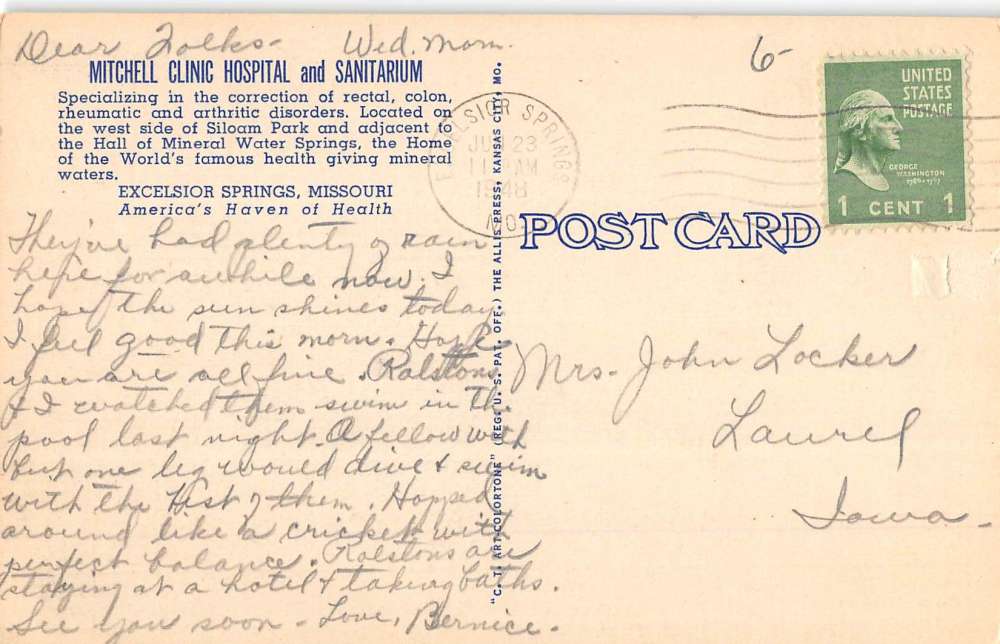 Dear Folks- Wed. Morn.
6-
MITCHELL CLINIC HOSPITAL and SANITARIUM
Specializing in the correction of rectal, colon,
rheumatic and arthritic disorders. Located on
the west side of Siloam Park and adjacent to
the Hall of Mineral Water Springs, the Home
of the World's famous health giving mineral
waters.
EXCELSIOR SPRINGS, MISSOURI
America's Haven of Health
They've had plenty of rain
here for awhile now. I
hope the sun shines today.
I feel good this morn. Hope
you are all fine. Ralstons
& I watched them swim in the
pool last night. A fellow with
but one leg would dive & swim
with the best of them. Hopped
around like a cricket with
perfect balance. Ralstons are
staying at a hotel & taking baths.
See you soon - Love, Bernice.
"C. T. ART-COLORTONE" (REG. U. S. PAT. OFF.) THE ALLIS PRESS, KANSAS CITY, MO.
EXCELSIOR SPRINGS
23
AM
1948
MO.
UNITED
STATES
POSTAGE
GEORGE
WASHINGTON
1 CENT 1
POST CARD
Mrs. John Locker
Laurel
Iowa.